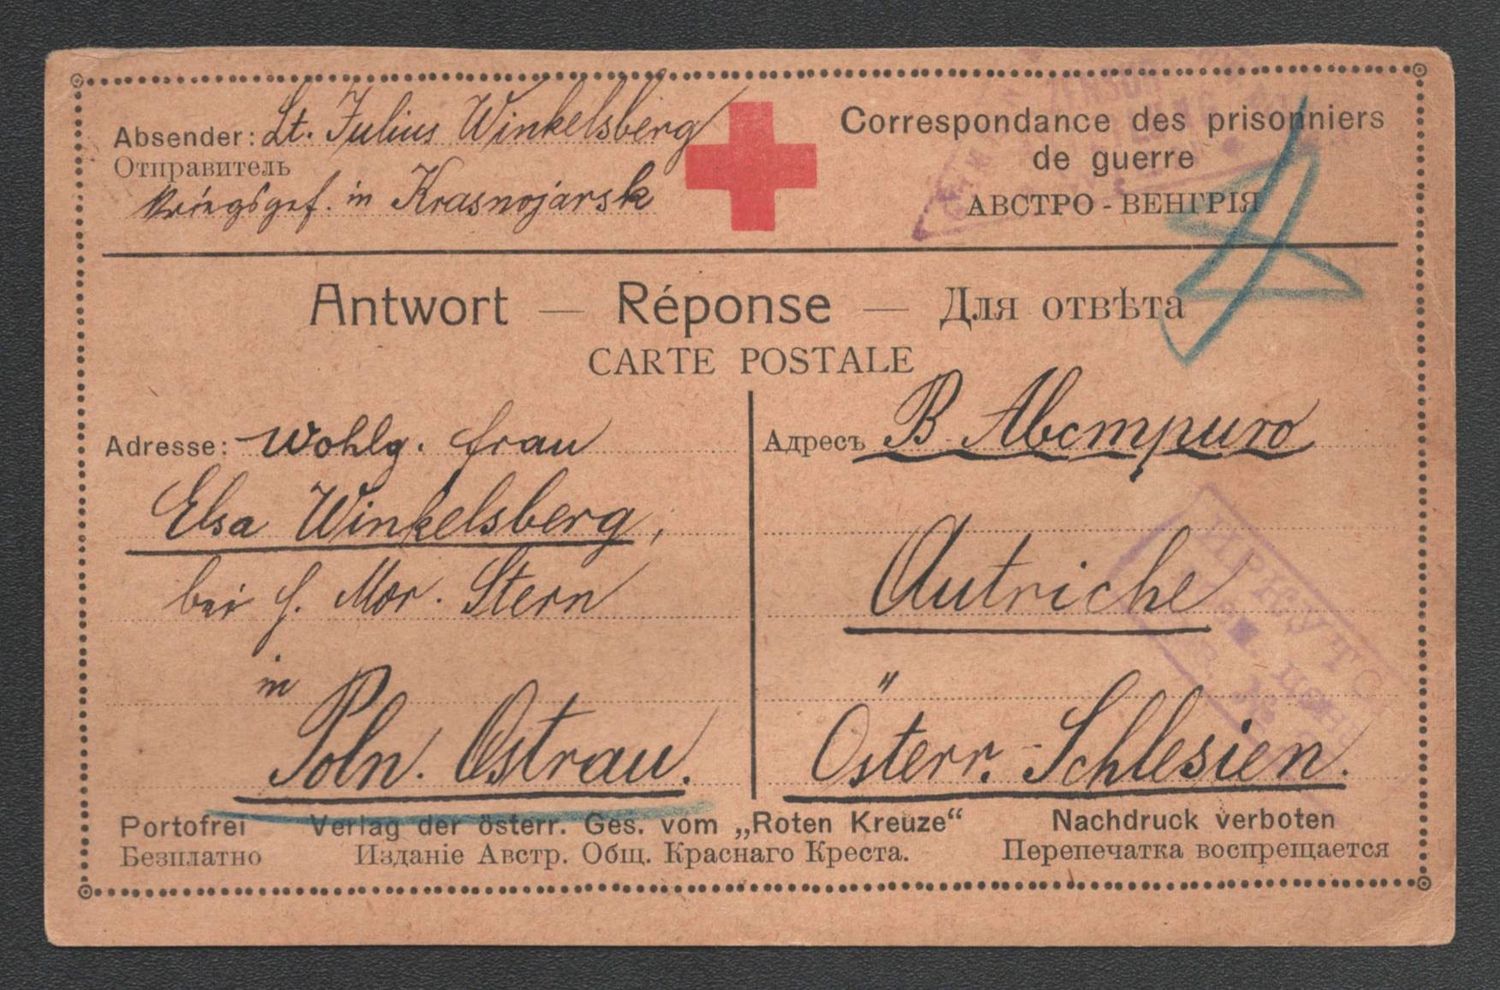 Absender: Lt. Julius Winkelsberg
Отправитель
Kriegsgef. in Krasnojarsk
Correspondance des prisonniers
de guerre
АВСТРО - ВЕНГРІЯ
Antwort — Réponse — Для отвѣта
CARTE POSTALE
Adresse: Wohlg. Frau
Elsa Winkelsberg,
bei H. Mor. Stern
in
Poln. Ostrau.
Адресъ В Австрию
Autriche
Österr. Schlesien.
ИРКУТС
Portofrei Verlag der österr. Ges. vom „Roten Kreuze“ Nachdruck verboten
Безплатно Изданіе Австр. Общ. Краснаго Креста. Перепечатка воспрещается